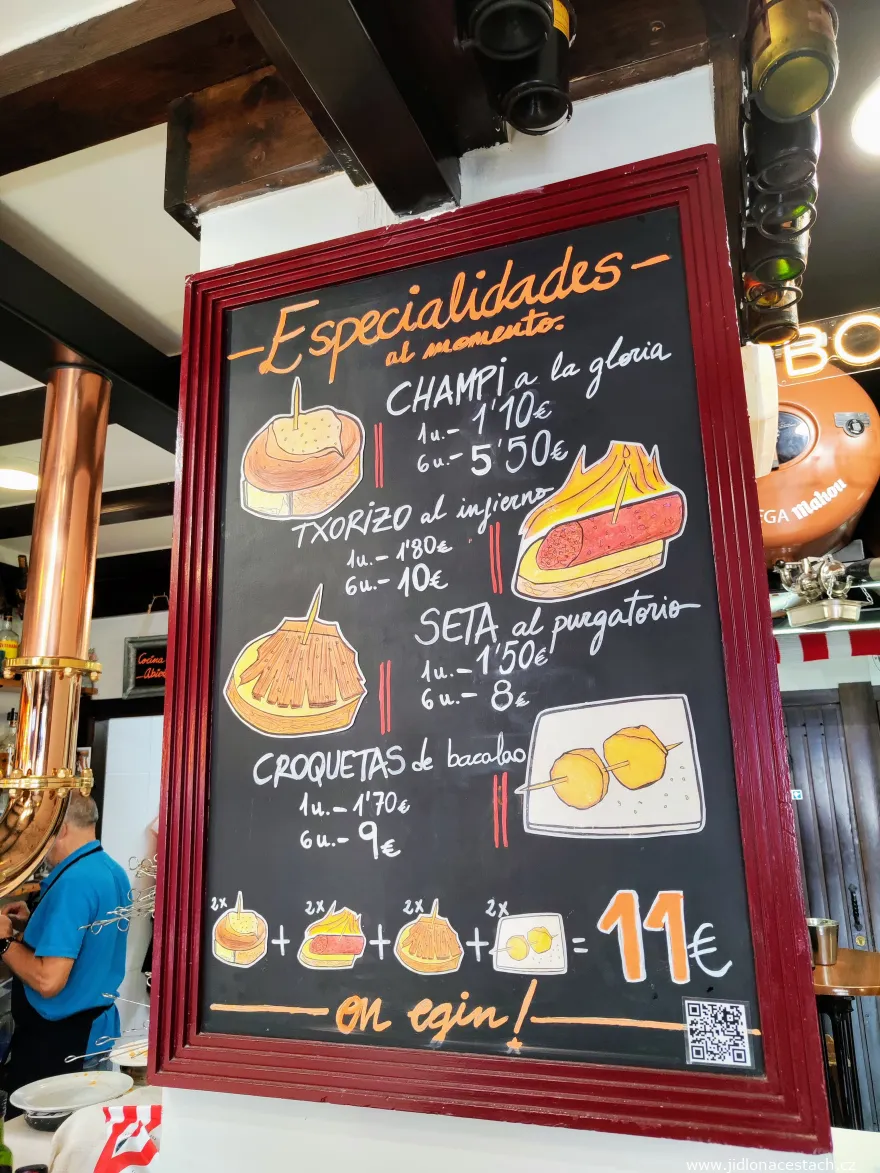 Especialidades
al momento.
CHAMPi a la gloria
1u.- 1'10€
6u.- 5'50€
TXORIZO al infierno
1u.- 1'80€
6u.- 10€
SETA al purgatorio
1u.- 1'50€
6u.- 8€
CROQUETAS de bacalao
1u.- 1'70€
6u.- 9€
2x + 2x + 2x + 2x = 11€
on egin!
BO
EGA Mahou
Cocina
Abie
www.jidlonacestach.cz